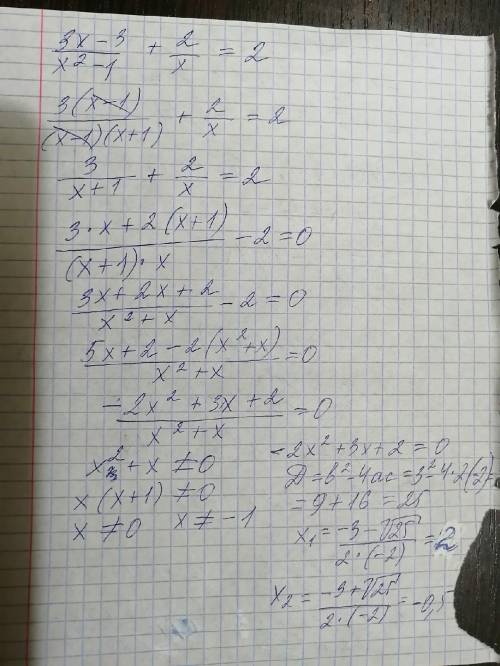 (3x-3)/(x²-1) + 2/x = 2
3(x-1)/((x-1)(x+1)) + 2/x = 2
3/(x+1) + 2/x = 2
(3·x+2(x+1))/((x+1)·x) - 2 = 0
(3x+2x+2)/(x²+x) - 2 = 0
(5x+2-2(x²+x))/(x²+x) = 0
(-2x²+3x+2)/(x²+x) = 0
x²+x ≠ 0
x(x+1) ≠ 0
x ≠ 0 x ≠ -1
-2x²+3x+2=0
D=b²-4ac=3²-4·2(-2)=
=9+16=25
x₁=(-3-√25)/(2·(-2))=2
x₂=(-3+√25)/(2·(-2))=-0,5